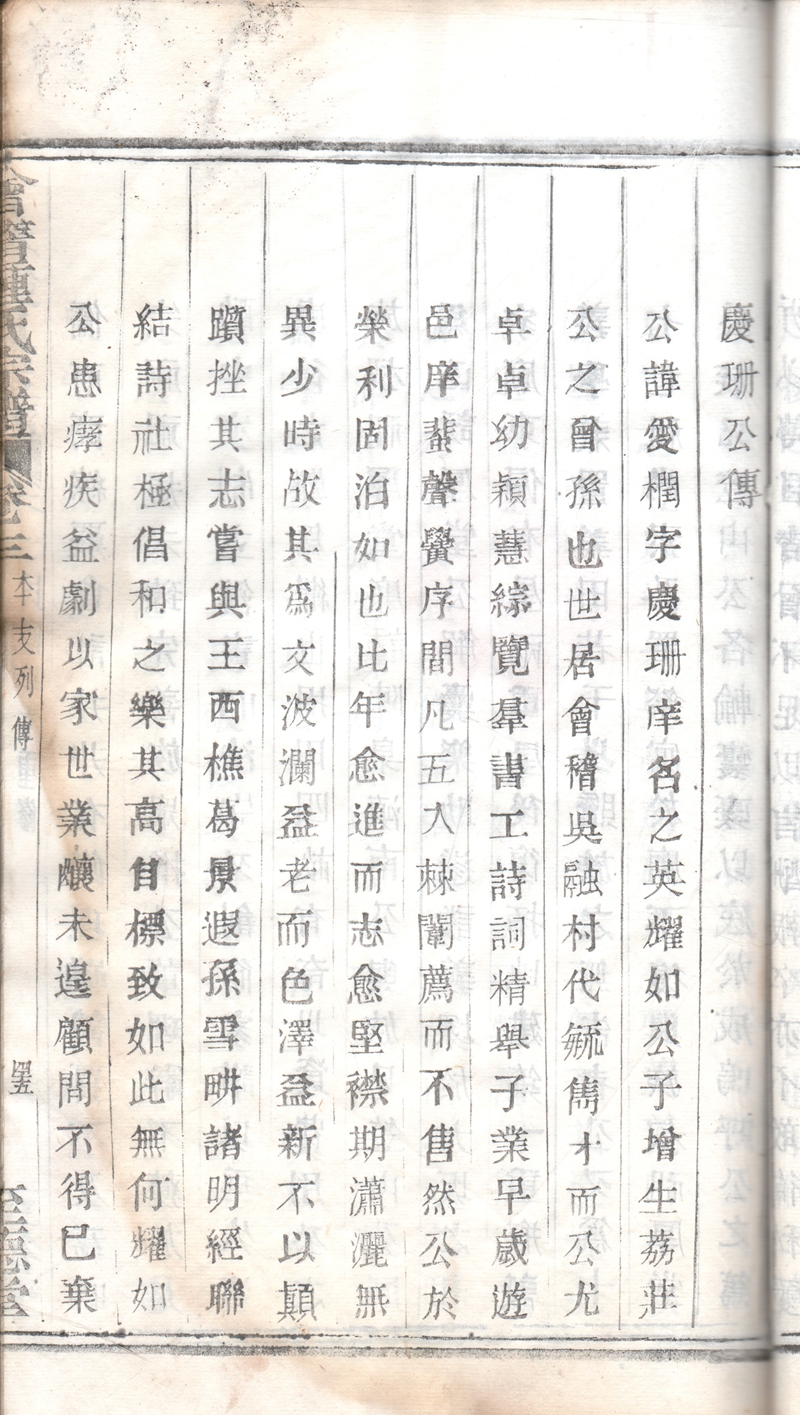 慶珊公傳
公諱愛橺字慶珊庠名之英耀如公子增生荔莊
公之曾孫也世居會稽吳融村代毓雋才而公尤
卓卓幼穎慧綜覽羣書工詩詞精舉子業早歲遊
邑庠蜚聲黌序間凡五入棘闈薦而不售然公於
榮利固泊如也比年愈進而志愈堅襟期瀟灑無
異少時故其爲文波瀾益老而色澤益新不以顚
躓挫其志嘗與王西樵葛景遐孫雪畊諸明經聯
結詩社極倡和之樂其高自標致如此無何耀如
公患瘴疾益劇以家世業釀未遑顧問不得已棄
會稽陳氏宗譜 卷三 本支列傳 四五 至德堂